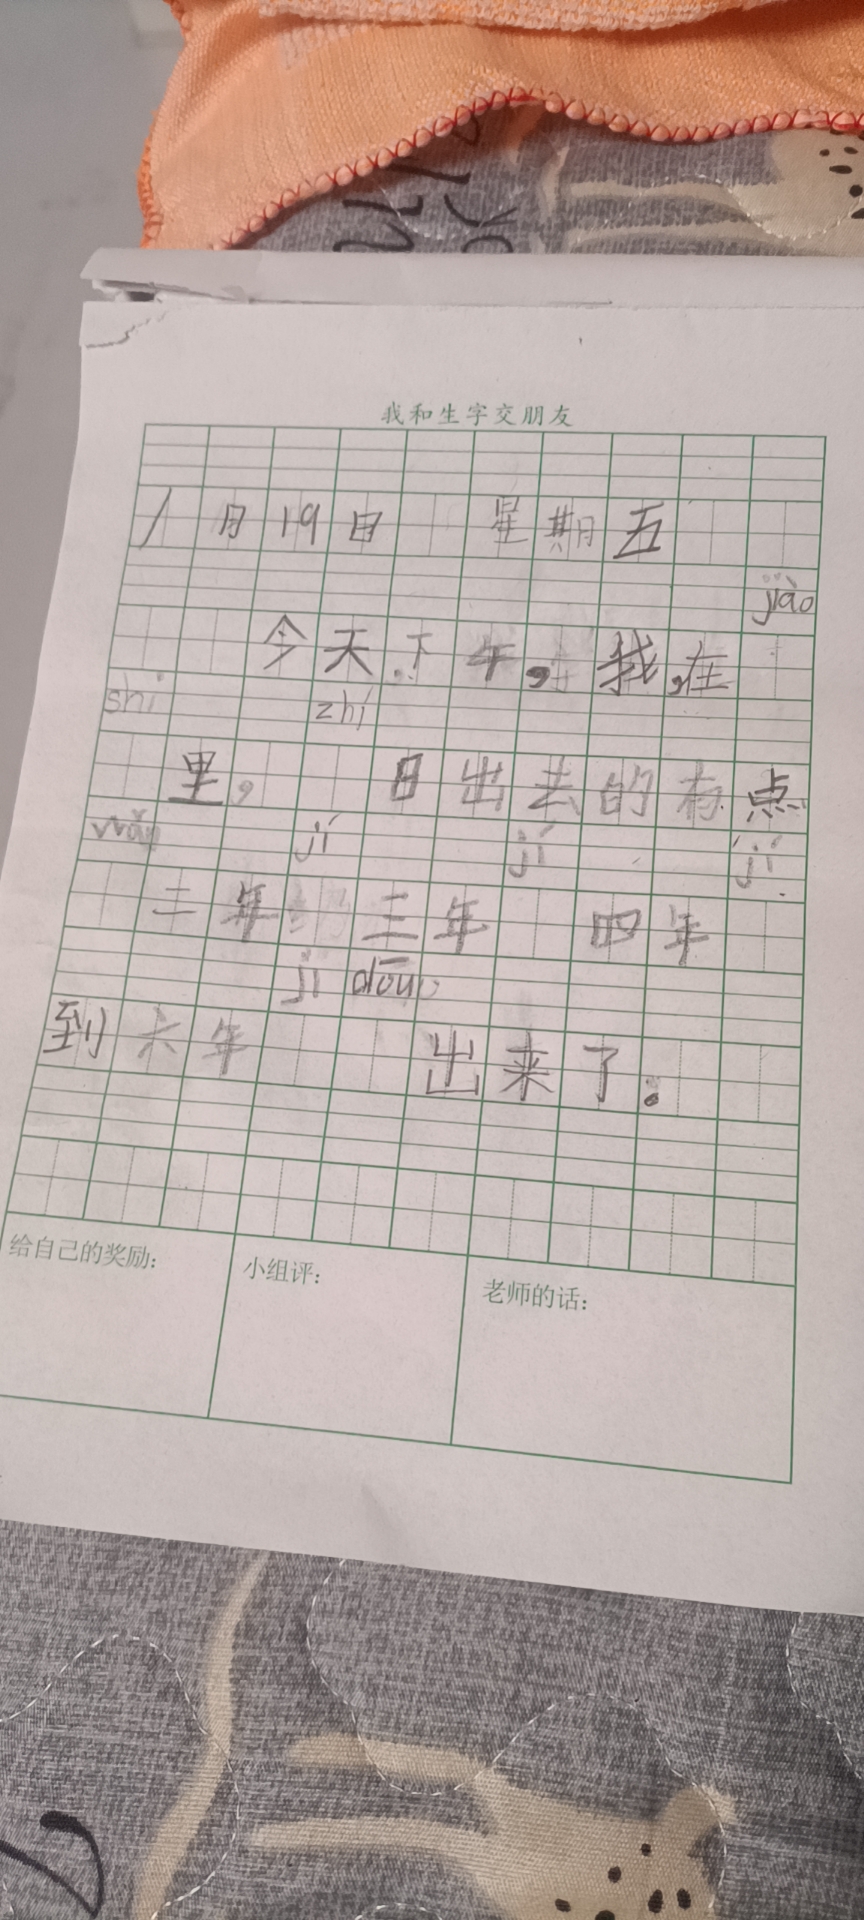 我和生字交朋友
1月19日 星期五
jiào
今天下午,我,在
shi zhí
里, 日出去的有点
wǎn jí jí jí
二年 三年 四年
jí dōu
到六年 出来了.
给自己的奖励:
小组评:
老师的话: